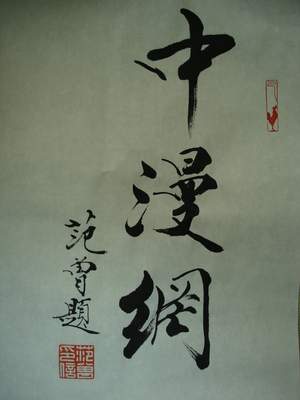 中漫網
范曾題